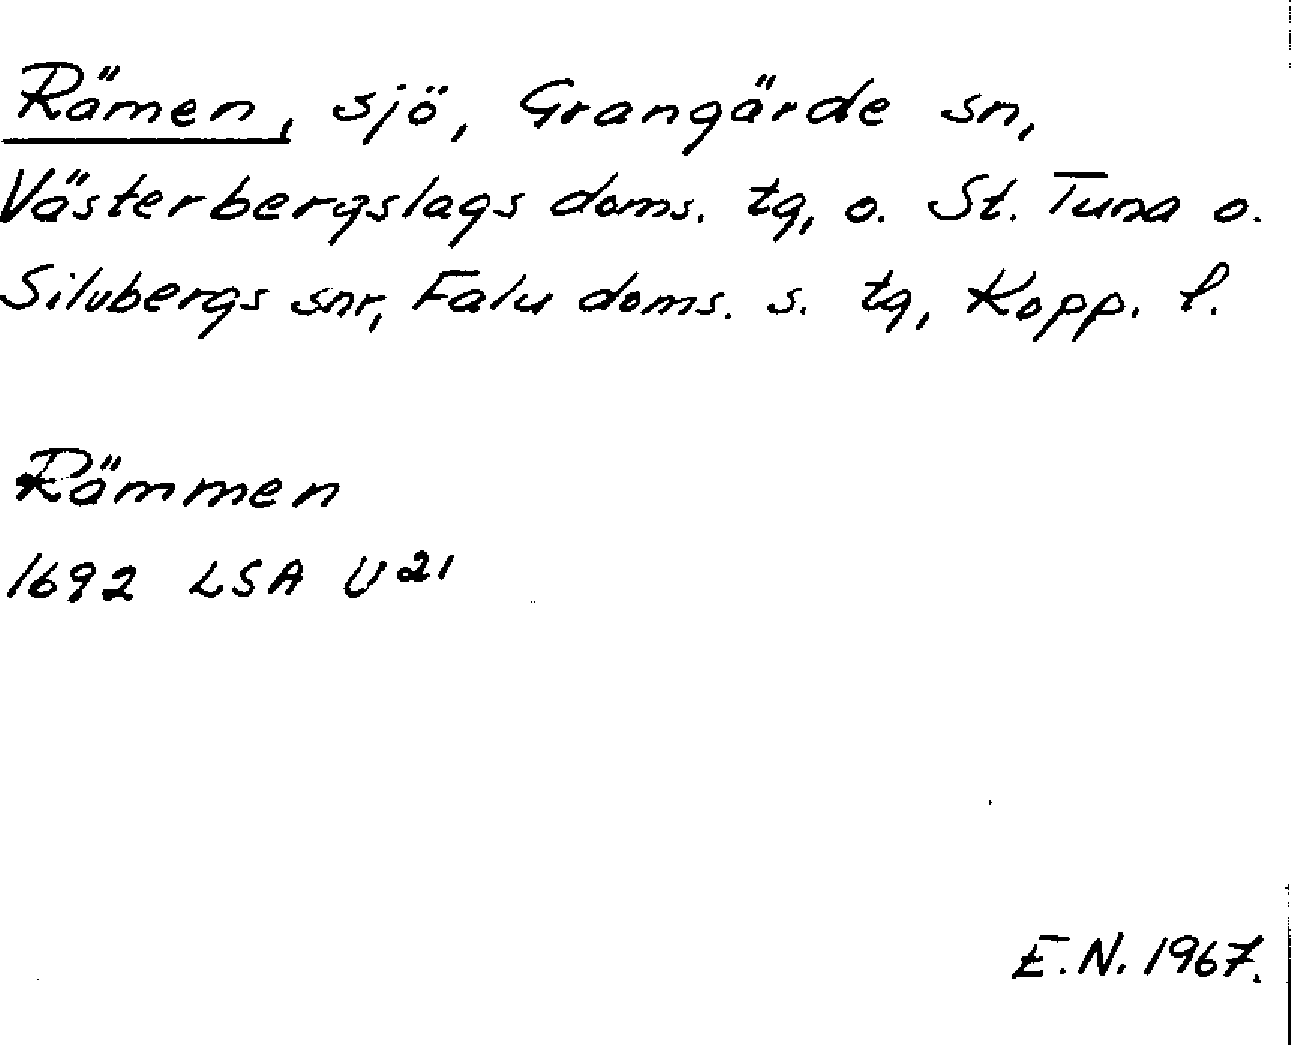 Rämen, sjö, Grangärde sn,
Västerbergslags doms. tg, o. St. Tuna o.
Silvbergs snr, Falu doms. s. tg, Kopp. l.
Rämmen
1692 LSA U 21
E.N. 1967.